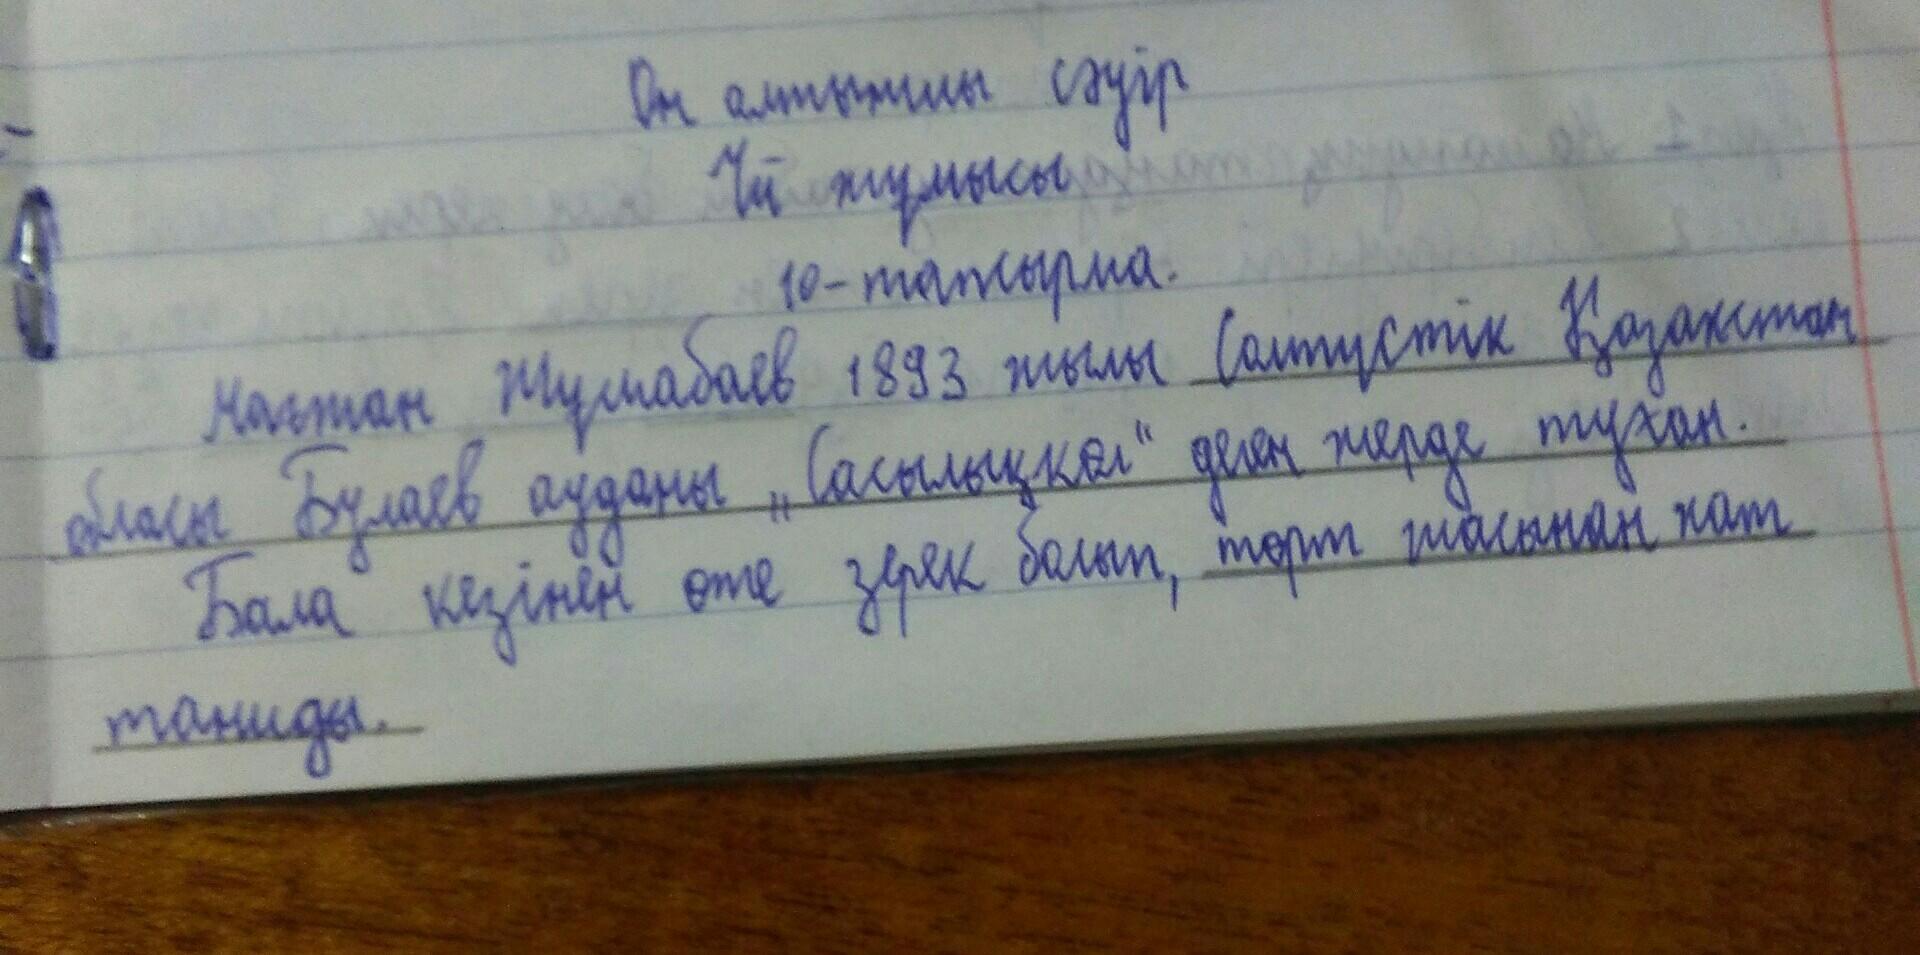 Он алтыншы сәуір
Үй жұмысы
10-тапсырма.
Мағжан Жұмабаев 1893 жылы Солтүстік Қазақстан
облысы Бұлаев ауданы „Сасықкөл" деген жерде туған.
Бала кезінен өте зерек болып, төрт жасынан хат
таниды.